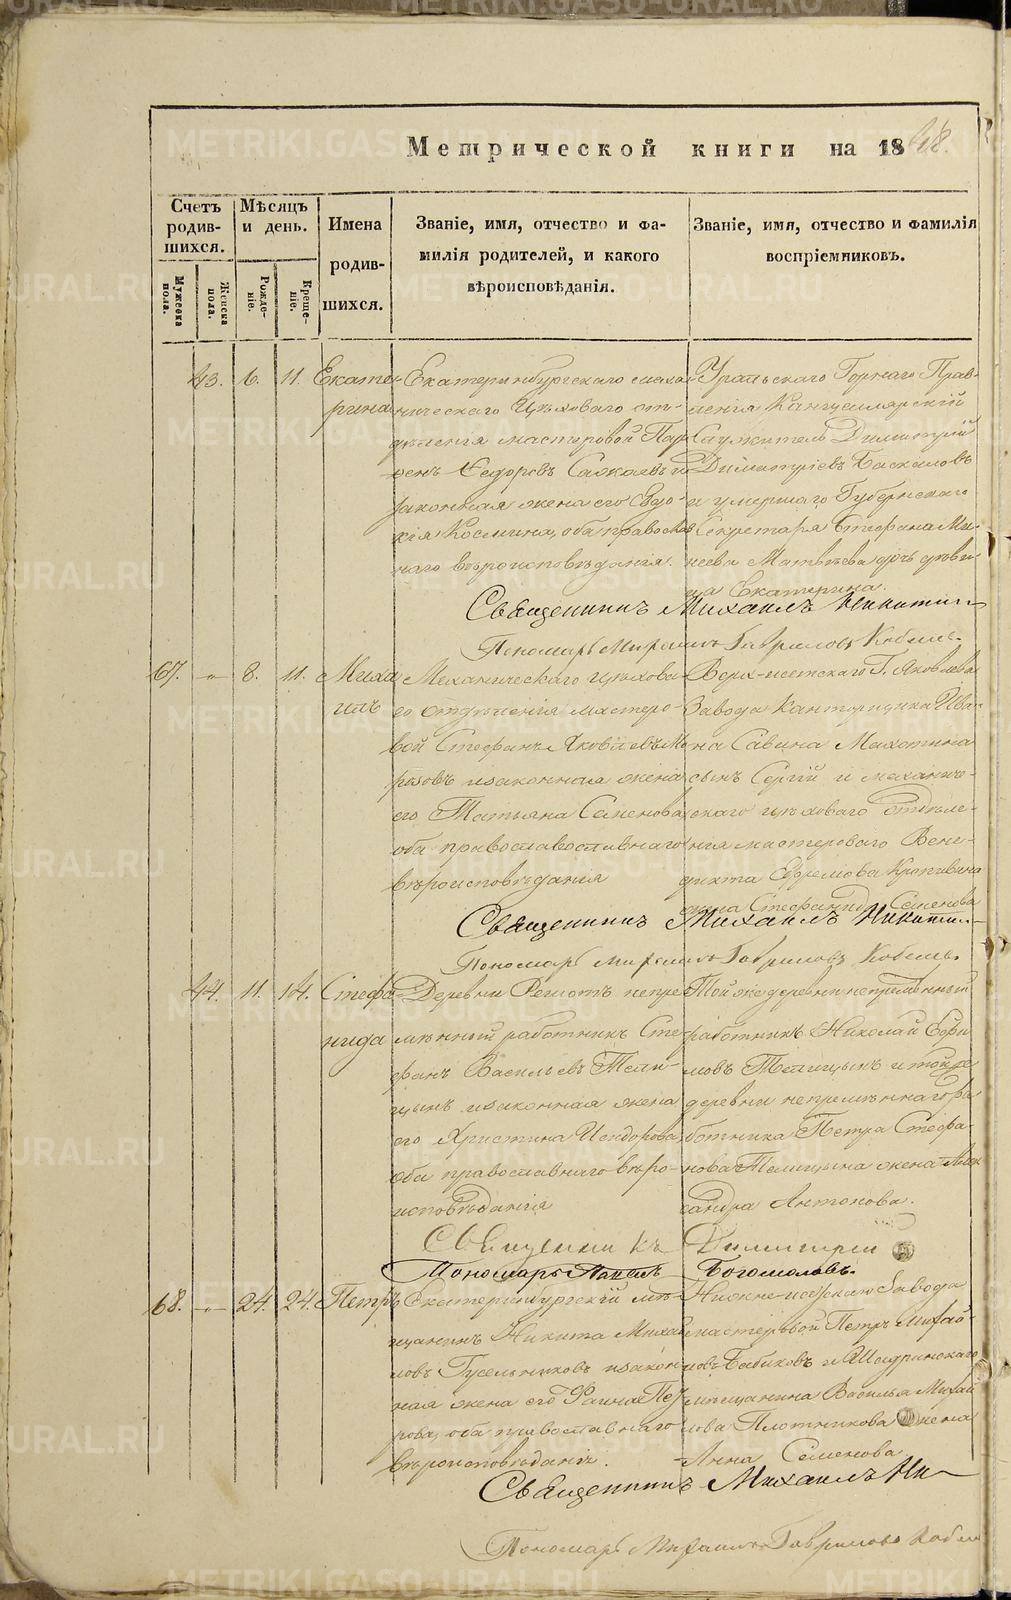 Метрической книги на 1848.
Счетъ родив-шихся.
Мужеска пола.
Женска пола.
Мѣсяцъ и день.
Рожде-ніе.
Креще-ніе.
Имена родив-шихся.
Званіе, имя, отчество и фа-
милія родителей, и какого
вѣроисповѣданія.
Званіе, имя, отчество и фамилія
воспріемниковъ.
43. 6. 11. Екате-
рина
Екатеринбургскаго меха-
ническаго Цѣховаго от-
дѣленія мастеровой Пар-
фенъ Ѳедоровъ и
законная жена его Евдо-
кія Космина, оба православ
наго вѣроисповѣданія.
Уральскаго Горнаго Прав-
ленія Канцелярскій
Служитель Димитрій
Димитріевъ
и умершаго Губернскаго
Секретаря Стефана Ми-
неева Матвѣева дочь дѣви-
ца Екатерина.
Священникъ Михаилъ Никитин
Пономарь Михаилъ Гавриловъ Кобелъ.
67. -„- 8. 11. Миха
илъ
Механическаго цѣхова-
го отдѣленія мастеро-
вой Стефанъ Яковлевъ Мо
розовъ и законная жена
его Татьяна Семенова
оба православославнаго
вѣроисповѣданія
Верх-исетскаго Г. Яковлева
Завода Канторщика Ива-
на Савина Махотина
сынъ Сергій и механиче-
скаго цѣховаго отдѣле-
нія мастероваго Вене-
дикта Ефремова Крапивина
жена Стефанида Семенова
Священникъ Михаилъ Никитин
Пономарь Михаилъ Гавриловъ Кобелъ.
44. 11. 14. Стефа-
нида
Деревни Решотъ непре-
мѣнный работникъ Сте-
фанъ Васильевъ Тели-
цынъ и законная жена
его Христина Исидорова
оба православнаго вѣро-
исповѣданія
Той же деревни непремѣнный
работникъ Николай Ефи-
мовъ Телицынъ и той же
деревни непремѣннаго ра-
ботника Петра Стефа-
нова Телицына жена Алек
сандра Антонова.
Священникъ Димитрій
Пономарь Павелъ Богомоловъ.
68. -„- 24. 24. Петръ
Екатеринбургскій мѣ-
щанинъ Никита Михай
ловъ Гусельниковъ и закон-
ная жена его Фаина Пет
рова, оба православнаго
вѣроисповѣданія.
Нижне-исетскаго Завода
мастеровой Петръ Михай-
ловъ Бабиковъ и Шадринскаго
мѣщанина Василья Михай
лова Плотникова жена
Анна Семенова.
Священникъ Михаилъ Ни-
Пономарь Михаилъ Гавриловъ Кобел
METRIKI.GASO-URAL.RU